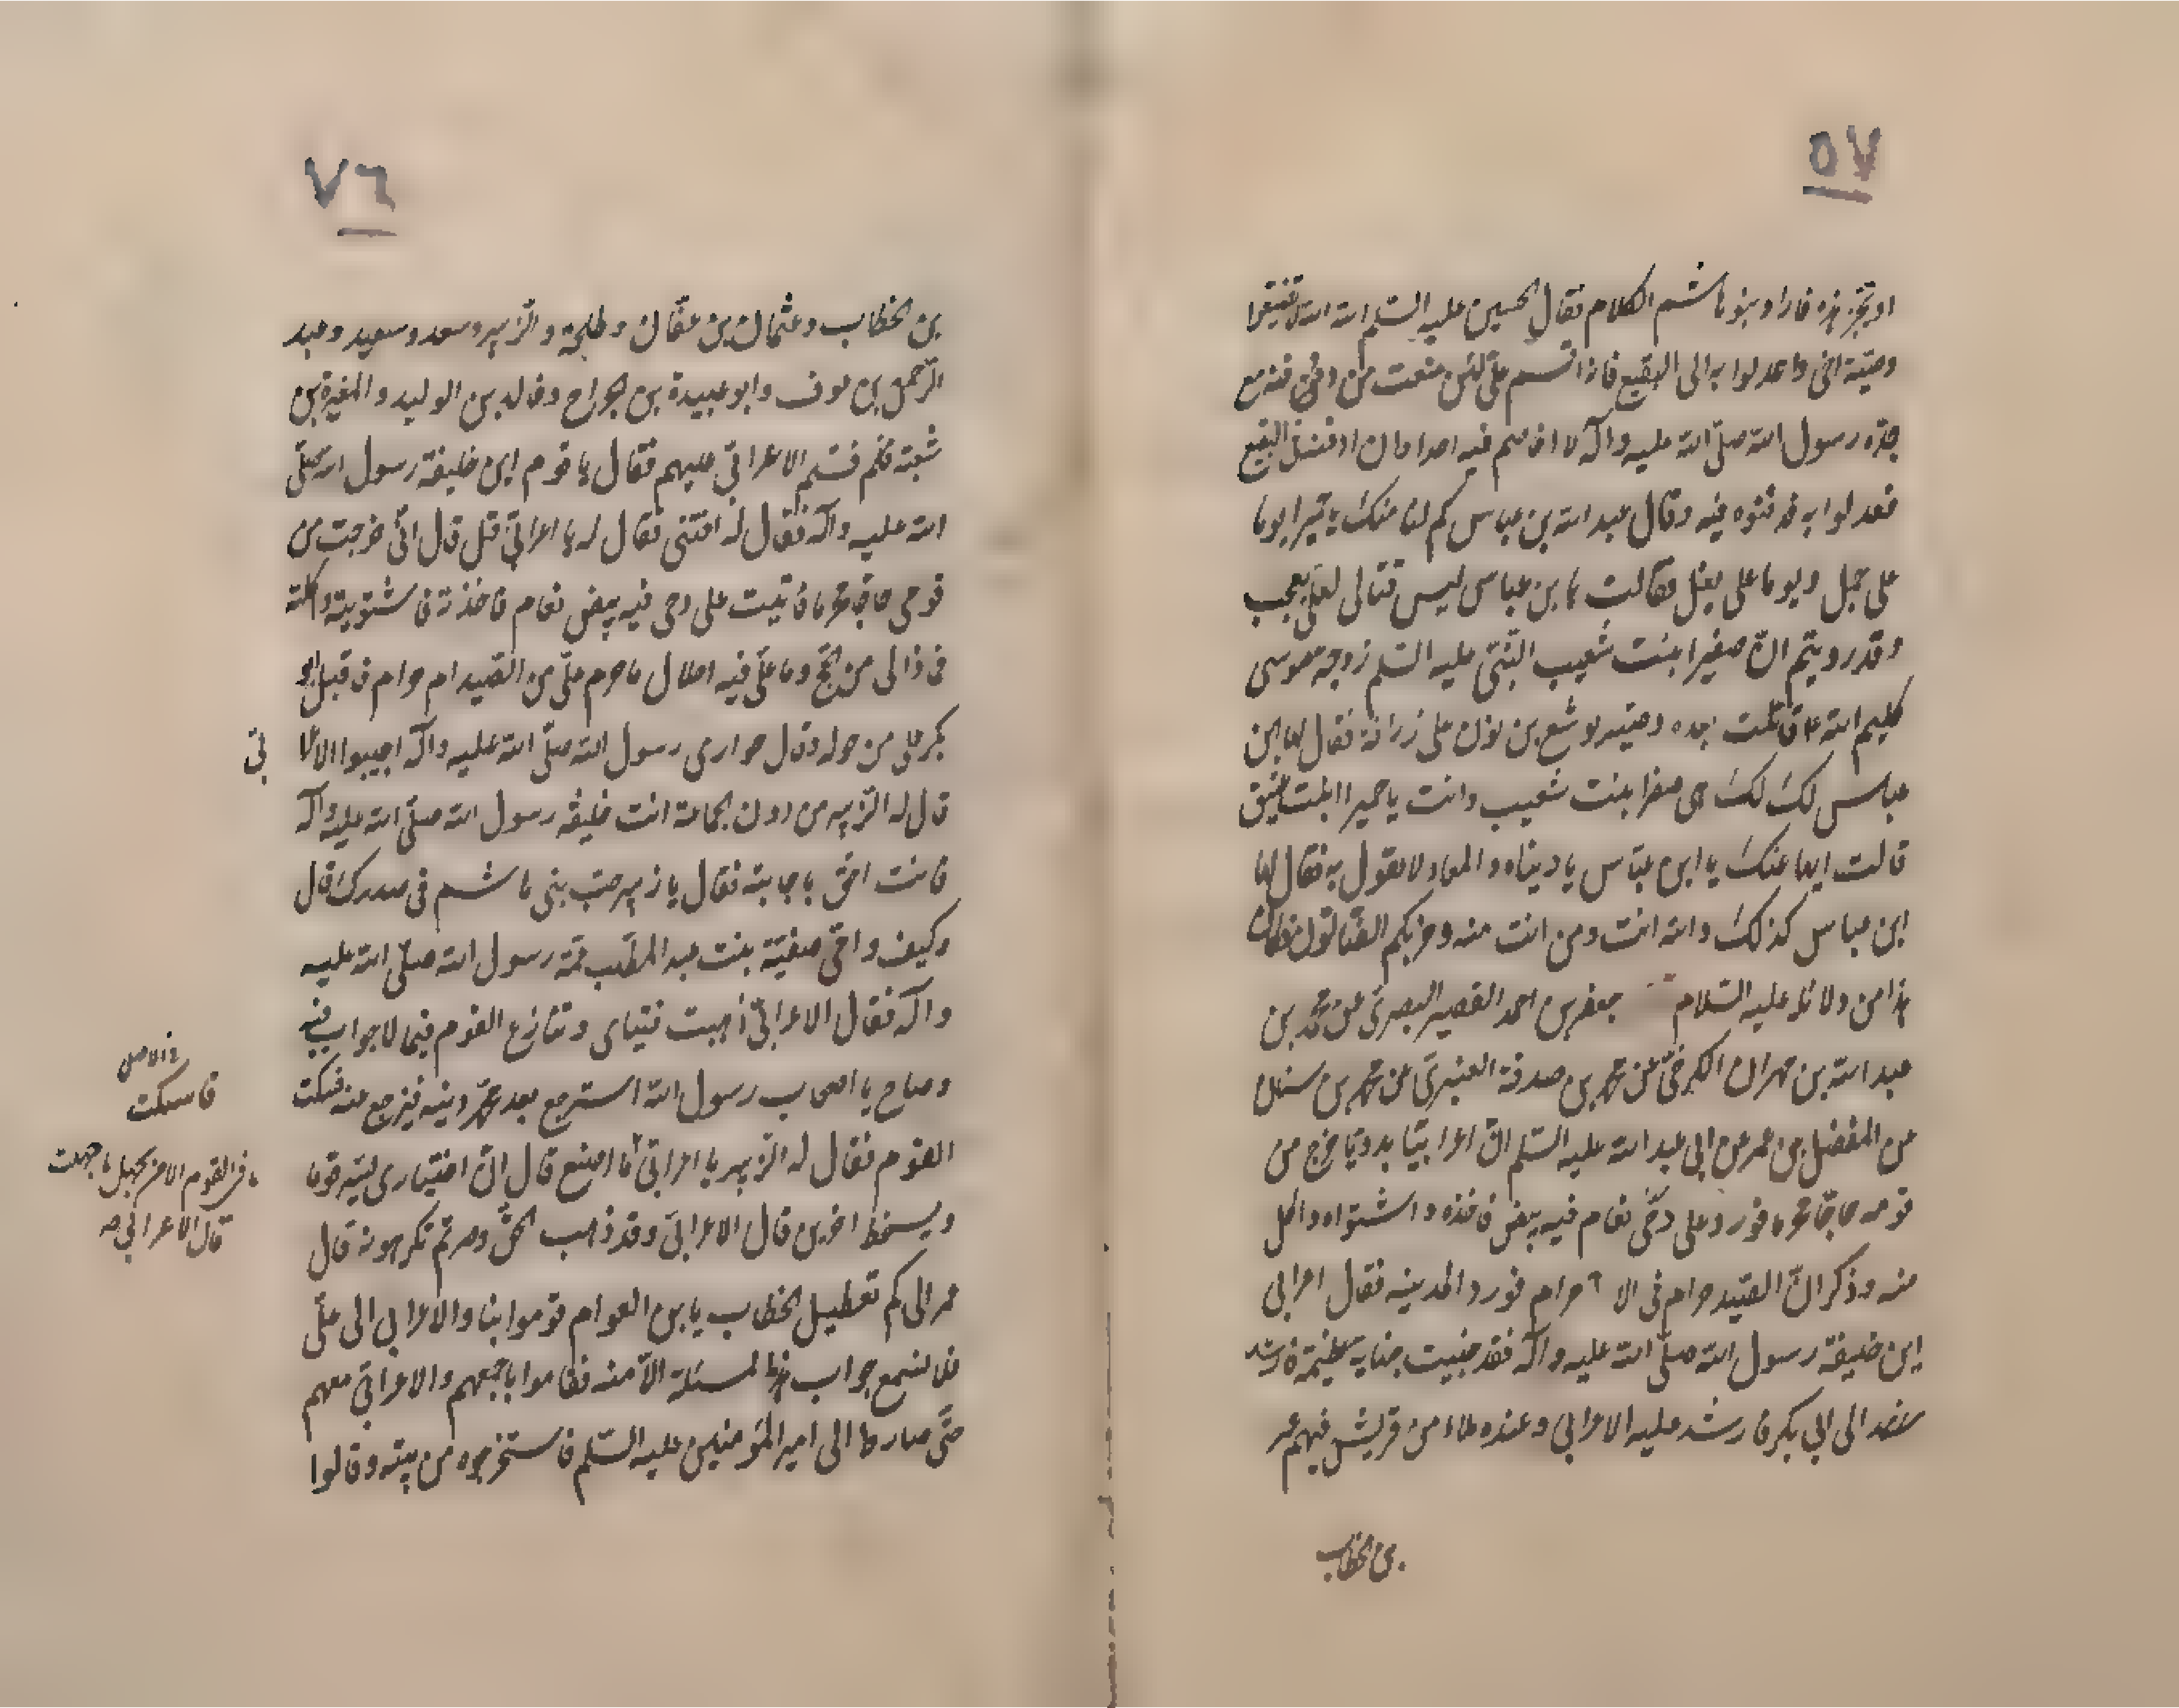 ٥٧
او تجز هذه فارادو بنو هاشم الكلام فقال الحسين عليه السلم الله الله لا تضيعوا
وصية اخى واعدلوا به الى البقيع فانه اقسم على لئن منعت من دفن فنه مع
جده رسول الله صلى الله عليه وآله لا اخاصم فيه احدا وان ادفنه فى البقيع
فعدلوا به فدفنوه فيه وقال عبد الله بن عباس كم لنا منك يا حميرا يوما
على جمل ويوما على بغل فقالت يا بن عباس ليس قتالى لعلى بعجب
وقد رويتم ان صفيرا بنت شعيب النبى عليه السلم زوجة موسى
كليم الله قاتلت بعده وصيه يوشع بن نون على زرافة فقال لها ابن
عباس لك لك هى صفرا بنت شعيب وانت يا حميرا
قالت ايها عنك يا ابن عباس يا ديناه والمعاد لا نقول به فقال لها
ابن عباس كذلك والله انت ومن انت منه وحزبكم الضالون فكان
هذا من دلائله عليه السلام جعفر بن احمد القصير البصرى عن محمد بن
عبد الله بن مهران الكرخى عن محمد بن صدقة العنبرى عن محمد بن سنان
عن المفضل بن عمر عن ابى عبد الله عليه السلم ان اعرابيا بدويا خرج من
قومه حاجا محرما فورد على دحى نعام فيه بيض فاخذه واشتواه واكل
منه وذكر ان الصيد حرام فى الاحرام فورد المدينه فقال اعرابى
اين خليفة رسول الله صلى الله عليه وآله فقد جنيت جناية عظيمة فارشد
الى ابى بكر فارشد عليه الاعرابى وعنده ملاء من قريش فيهم عمر
بن الخطاب
٧٦
بن الخطاب وعثمان بن عفان وطلحة والزبير وسعد وسعيد وعبد
الرحمن بن عوف وابو عبيدة بن الجراح وخالد بن الوليد والمغيرة بن
شعبة فسلم الاعرابى عليهم فقال يا قوم اين خليفة رسول الله صلى
الله عليه وآله فقال له افتنى فقال له يا اعرابى قل قال انى خرجت من
قومى حاجا محرما فاتيت على دحى فيه بيض نعام فاخذته فاشتويته واكلته
فماذا لى من الحج وما على فيه احلال ما حرم على من الصيد ام حرام فاقبل ابو
بكر على من حوله وقال حوارى رسول الله صلى الله عليه وآله اجيبوا الاعرا
بى
قال له الزبير من دون الجماعة انت خليفة رسول الله صلى الله عليه وآله
فانت احق باجابته فقال يا زبير حب بنى هاشم فى صدرك قال
وكيف وامى صفية بنت عبد المطلب عمة رسول الله صلى الله عليه
وآله فقال الاعرابى أذهبت فتياى وتنازع القوم فيما لا جواب فيه
وصاح يا اصحاب رسول الله استرجع بعد محمد دينه فيرجع عنه فسكت
القوم فقال له الزبير يا اعرابى ما اصنع قال
ويسخط اخرين قال الاعرابى وقد ذهب الحق وصرتم تكرهونه قال
عمر الى كم تعطيل الخطاب يا بن العوام قوموا بنا والاعرابى الى على
فلا نسمع جواب هذه المسئلة الا منه فقاموا باجمعهم والاعرابى معهم
حتى صاروا الى امير المؤمنين عليه السلم فاستخرجوه من بيته وقالوا
فاسكت
ما فى القوم الا من يجهل ما جهلت
قال الاعرابى